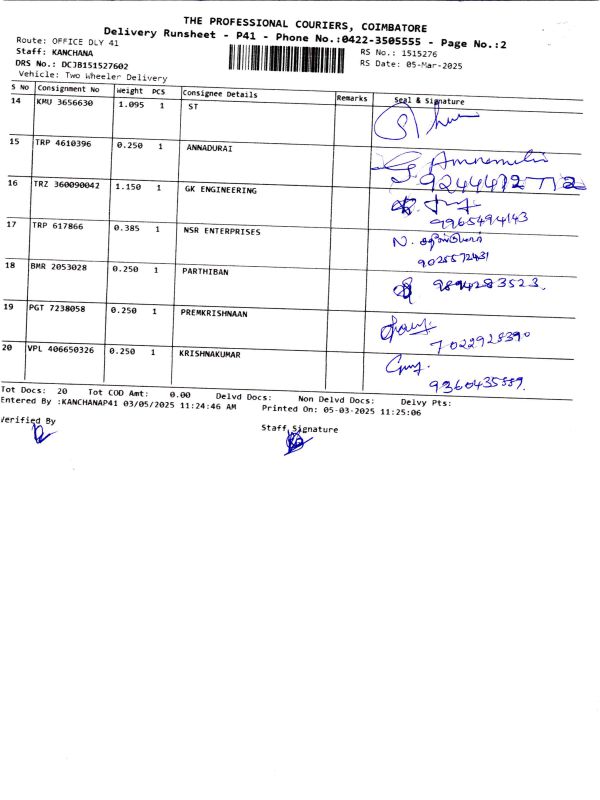 THE PROFESSIONAL COURIERS, COIMBATORE
Delivery Runsheet - P41 - Phone No.:0422-3505555 - Page No.:2
Route: OFFICE DLY 41
RS No.: 1515276
Staff: KANCHANA
RS Date: 05-Mar-2025
DRS No.: DCJB151527602
Vehicle: Two Wheeler Delivery
S No Consignment No Weight PCS Consignee Details Remarks Seal & Signature
14 KMU 3656630 1.095 1 ST
15 TRP 4610396 0.250 1 ANNADURAI
16 TRZ 360090042 1.150 1 GK ENGINEERING
9965494143
17 TRP 617866 0.385 1 NSR ENTERPRISES N.
9025572431
18 BMR 2053028 0.250 1 PARTHIBAN 9894283523.
19 PGT 7238058 0.250 1 PREMKRISHNAAN
7022928390
20 VPL 406650326 0.250 1 KRISHNAKUMAR
Tot Docs: 20 Tot COD Amt: 0.00 Delvd Docs: Non Delvd Docs: Delvy Pts:
Entered By :KANCHANAP41 03/05/2025 11:24:46 AM Printed On: 05-03-2025 11:25:06
Verified By
Staff Signature